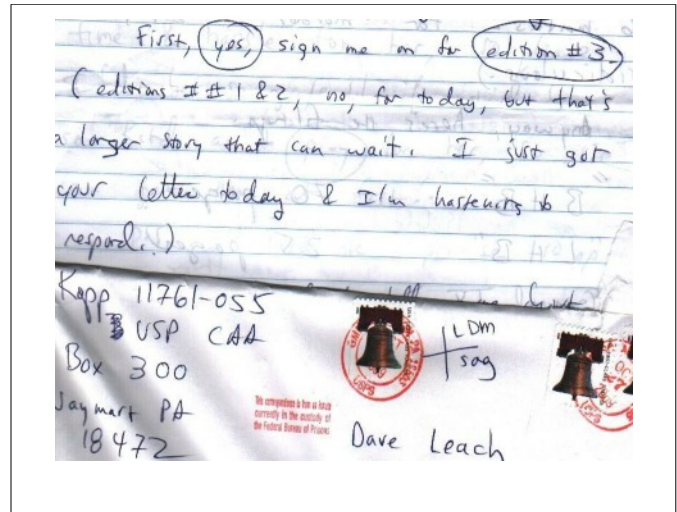 First, yes, sign me on for edition #3.
(editions ## 1 & 2, no, for today, but that's
a longer story that can wait. I just got
your letter today & I'm hastening to
respond.)
Kopp 11761-055
USP CAA
Box 300
Waymart PA
18472
LDM
sog
This correspondence is from an inmate
currently in the custody of
the Federal Bureau of Prisons
USPS
Dave Leach